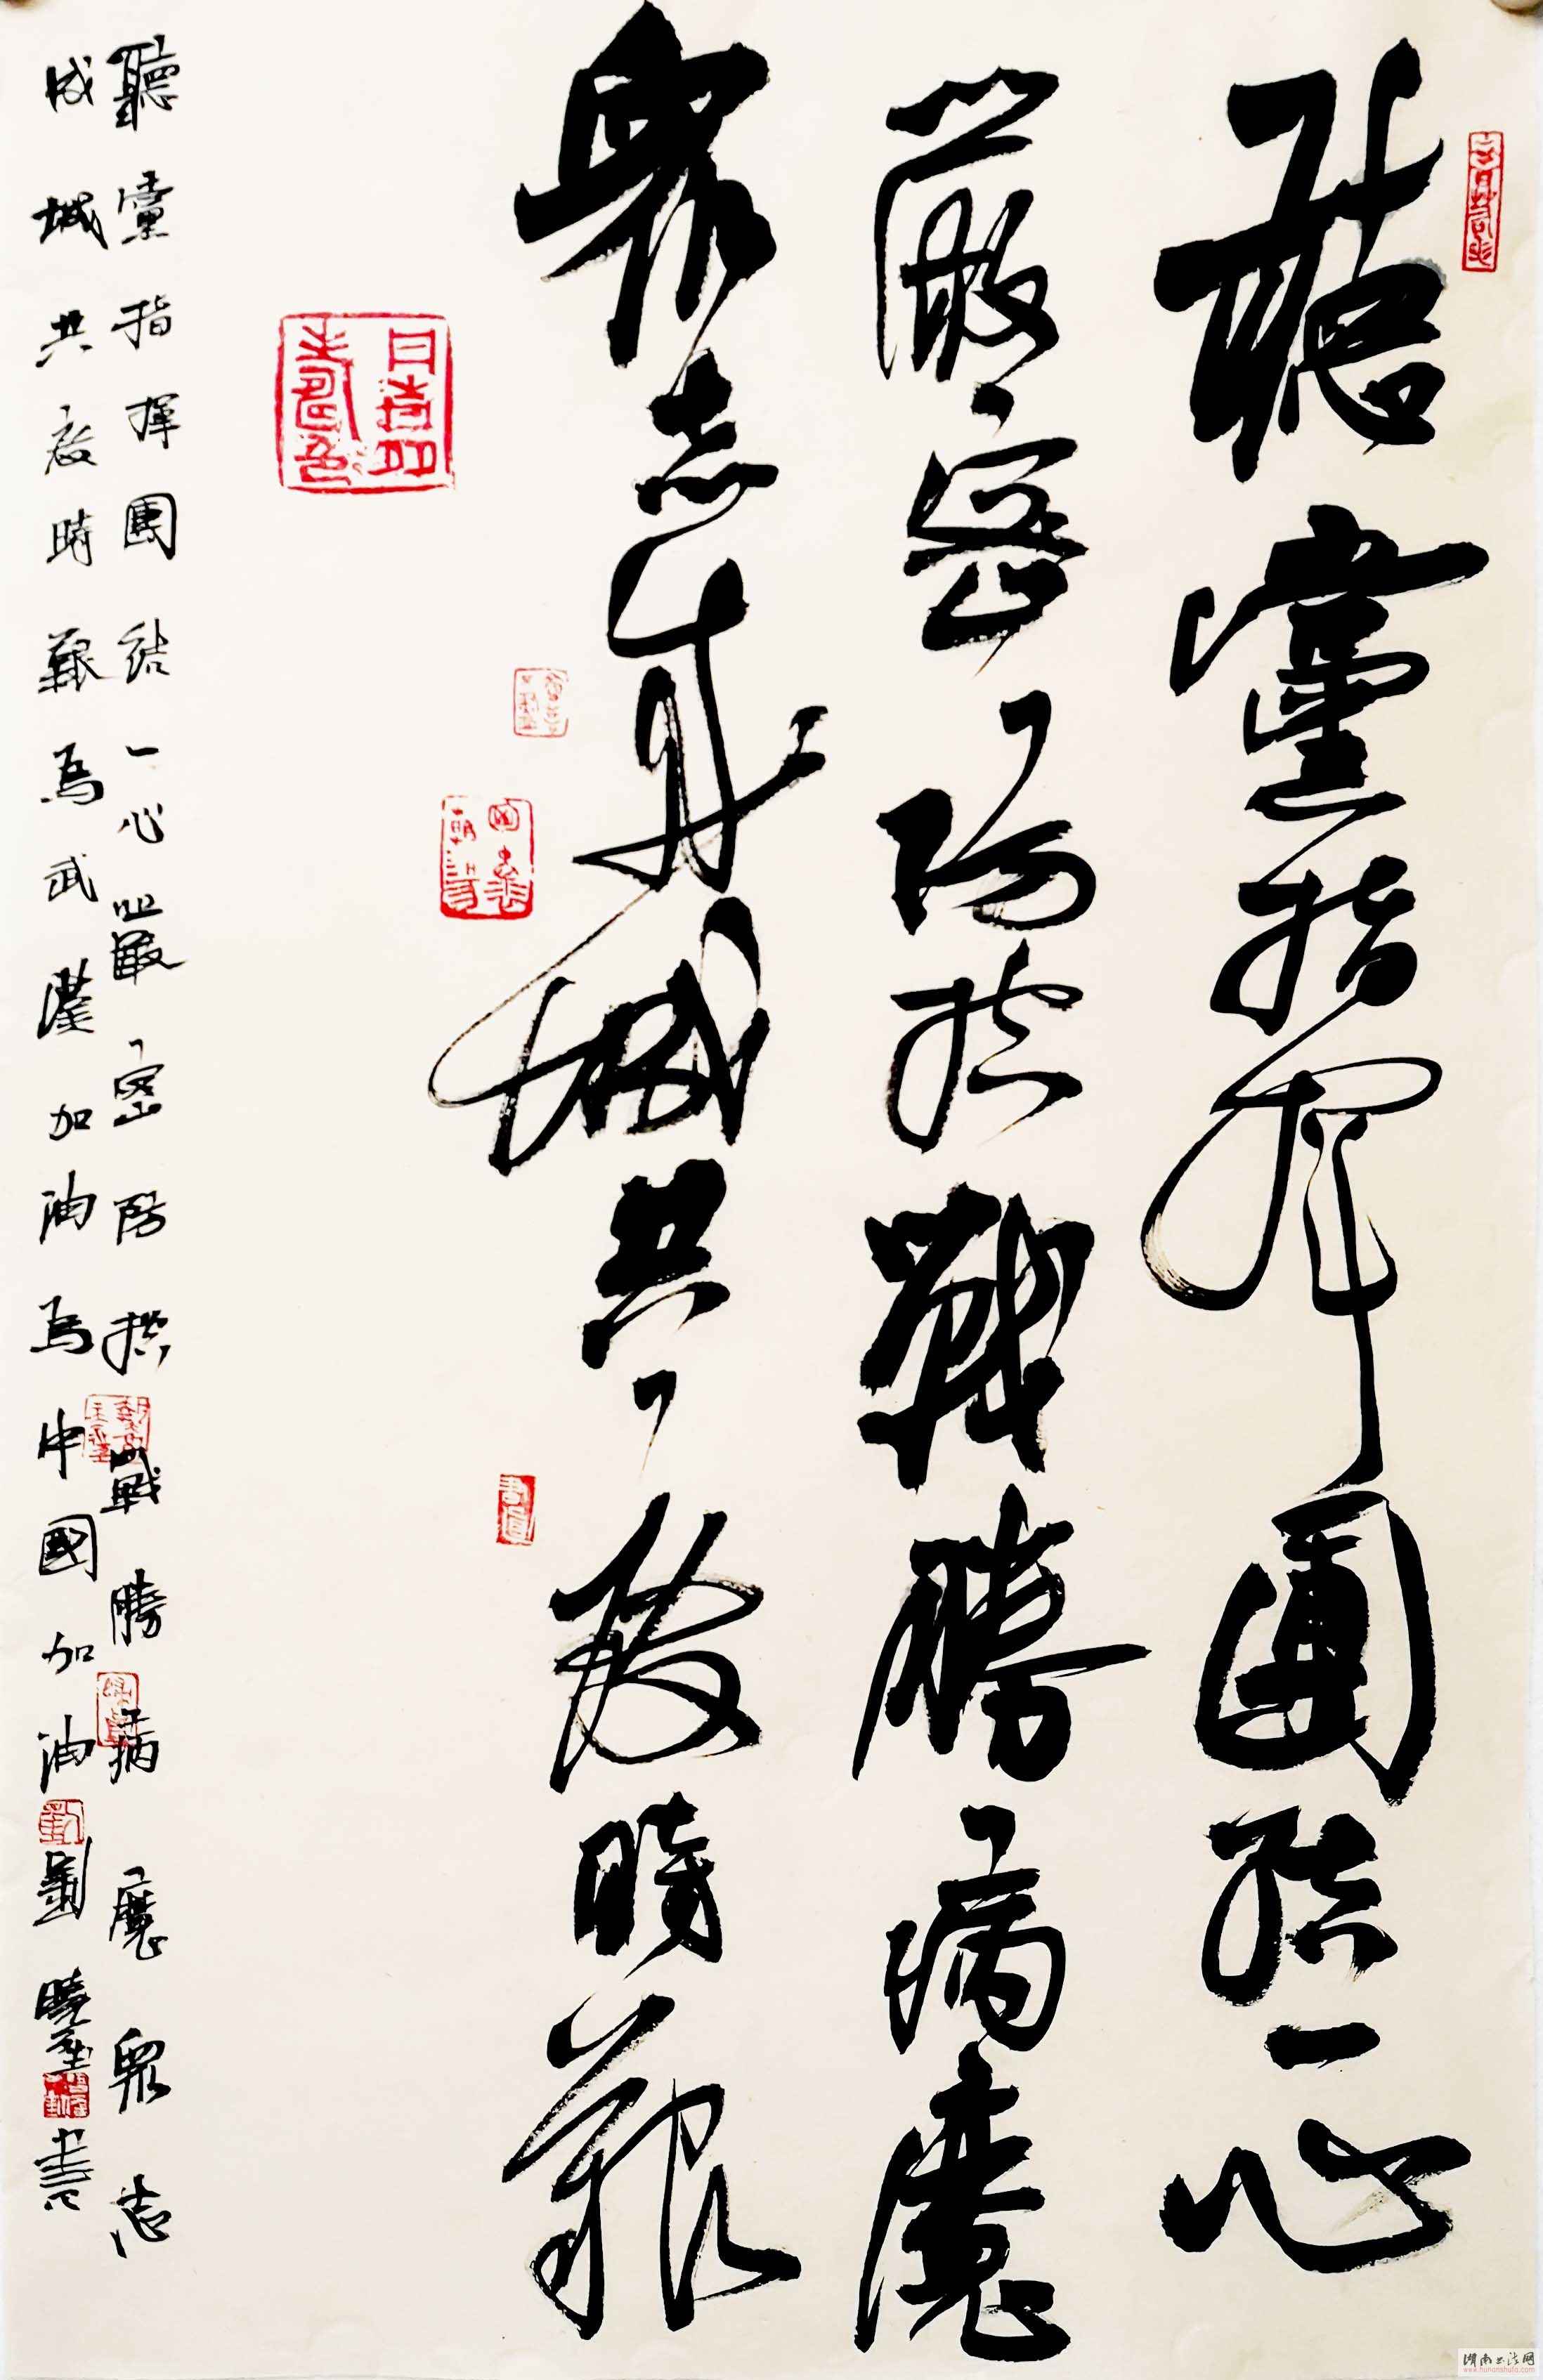 聽黨指揮團結一心
嚴密防控戰勝病魔
眾志成城共度時艱
聽黨指揮團結一心嚴密防控戰勝病魔眾志
成城共度時艱為武漢加油為中國加油劉曉奎書
湖南书法网
www.hunanshufa.com